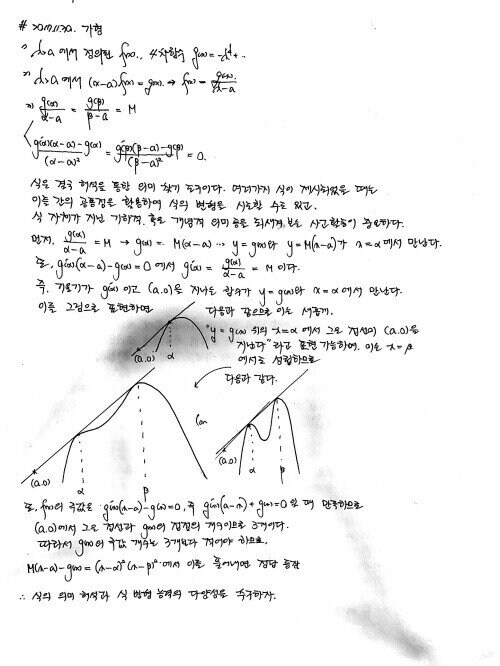 # 20171130. 가형
1) x>a 에서 정의된 f(x)., 4차함수 g(x) = -x⁴+ ..
2) x>a 에서 (x-a)f(x)=g(x). → f(x) = g(x)/(x-a)
3) g(α)/(α-a) = g(β)/(β-a) = M
g'(α)(α-a)-g(α)/(α-a)² = g'(β)(β-a)-g(β)/(β-a)² = 0.
식은 결국 해석을 통한 의미 찾기 도구이다. 여러가지 식이 제시되었을 때는
이들 간의 공통점을 활용하여 식의 변형을 시도할 수도 있고.
식 자체가 지닌 기하적, 혹은 개념적 의미 등을 되새겨 보는 사고활동이 중요하다.
먼저. g(α)/(α-a) = M → g(α) = M(α-a) … y = g(x)와 y = M(x-a)가 x=α에서 만난다.
또, g'(α)(α-a)-g(α)=0 에서 g'(α) = g(α)/(α-a) = M 이다.
즉, 기울기가 g'(α) 이고 (a.0)을 지나는 함수가 y=g(x)와 x=α에서 만난다.
이를 그림으로 표현하면
다음과 같으므로 이는
"y=g(x) 위의 x=α 에서 그은 접선이 (a.0)을
지난다"라고 표현 가능하며. 이는 x=β
에서도 성립하므로
다음과 같다.
(a.0)
α
(a.0)
α
β
(or
(a.0)
α
β
또, f(x)의 극값은 g'(x)(x-a)-g(x)=0, 즉 g'(x)(a-x)+g(x)=0 일 때 만족하므로
(a.0)에서 그은 접선과 g(x)의 접점의 개수이므로 3개이다.
따라서 g(x)의 극값 개수는 3개보다 적어야 하므로.
M(x-a)-g(x)=(x-α)²(x-β)² 에서 이를 풀어내면 정답 등장
∴ 식의 의미 해석과 식 변형 능력의 다양성을 추구하자.